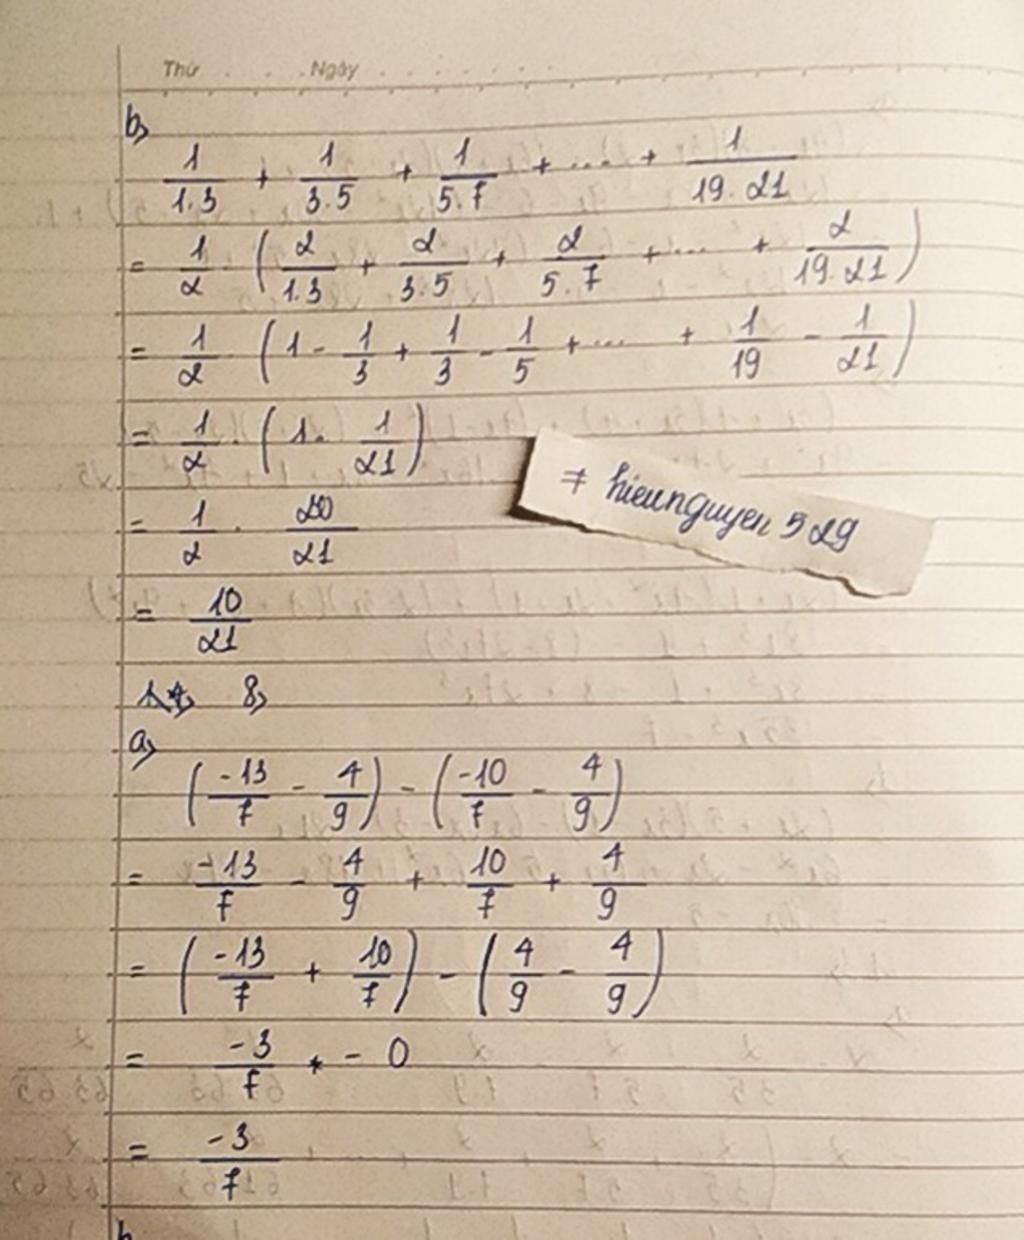 Thứ . . . Ngày . . . . . . .
b,
1/1.3 + 1/3.5 + 1/5.7 + .... + 1/19.21
= 1/2 . (2/1.3 + 2/3.5 + 2/5.7 + .... + 2/19.21)
= 1/2 . (1 - 1/3 + 1/3 - 1/5 + .... + 1/19 - 1/21)
= 1/2 . (1 - 1/21)
= 1/2 . 20/21
≠ hieunguyen 529
= 10/21
8,
a,
(-13/7 - 4/9) - (-10/7 - 4/9)
= -13/7 - 4/9 + 10/7 + 4/9
= (-13/7 + 10/7) - (4/9 - 4/9)
= -3/7 - 0
= -3/7